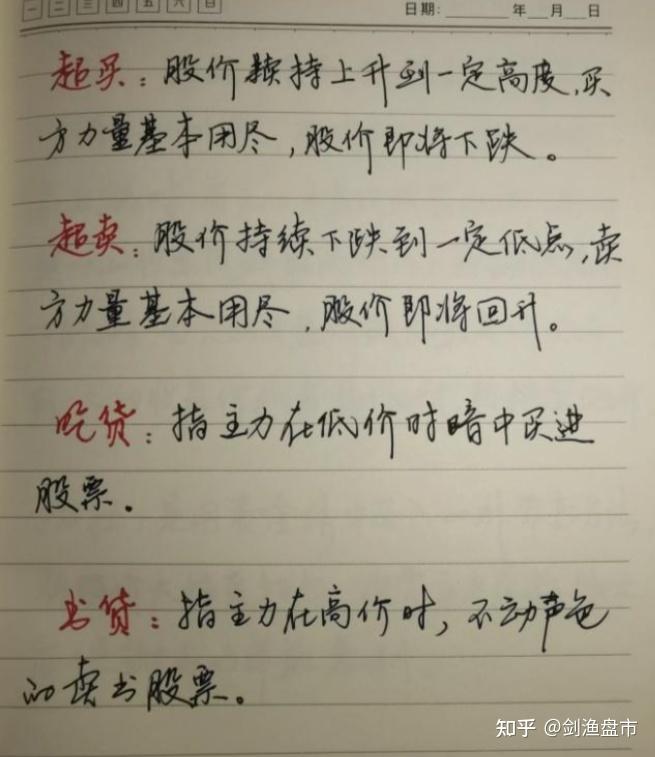 一 二 三 四 五 六 日
日期: 年 月 日
超买:股价持续上升到一定高度,买
方力量基本用尽,股价即将下跌。
超卖:股价持续下跌到一定低点,卖
方力量基本用尽,股价即将回升。
吃货:指主力在低价时暗中买进
股票。
出货:指主力在高价时,不动声色
的卖出股票。
知乎 @剑渔盘市